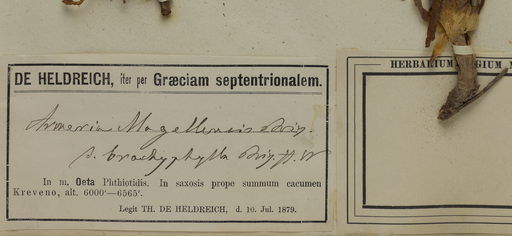 DE HELDREICH, iter per Græciam septentrionalem.
Armeria Magellensis Boiss.
β. brachyphylla Boiss.
In m. Oeta Phthiotidis. In saxosis prope summum cacumen
Kreveno, alt. 6000'—6565'.
Legit TH. DE HELDREICH, d. 10. Jul. 1879.
HERBARIUM